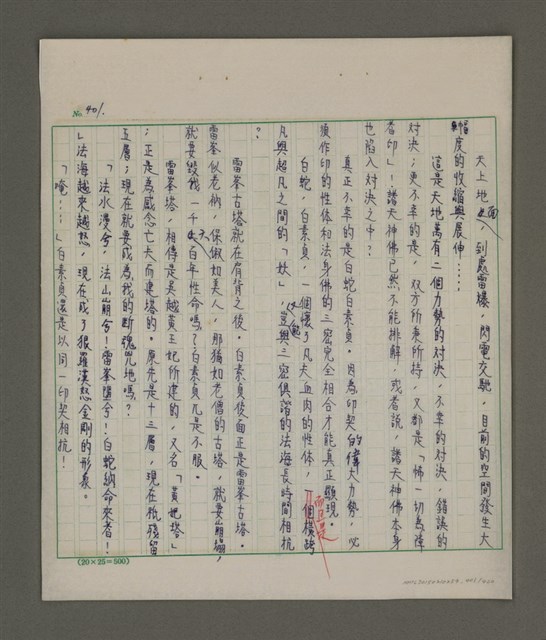 No. 401.
天上地面，到處雷爆，閃電交馳，目前的空間發生大
幅度的收縮與展伸……
這是天地萬有二個力勢的對決，不幸的對決，錯誤的
對決；更不幸的是，雙方所秉所持，又都是「怖一切為障
者印」！諸天神佛已然不能排解，或者說，諸天神佛本身
也陷入對決之中？
真正不幸的是白蛇白素貞。因為印契的偉大力勢，必
須作印的性体和法身佛的三密完全相合才能真正顯現。
白蛇，白素貞，一個懷了凡夫血肉的性体，而且是一個橫跨
凡與超凡之間的「妖」，豈能與三密俱諧的法海長時間相抗
？
雷峯古塔就在肩背之後。白素貞後面正是雷峯古塔。
雷峯似老衲，保俶如美人，那猶如老僧的古塔，就要崩塌，
就要毀我一千七百年性命嗎？白素貞凡是不服。
雷峯塔，相傳是吳越黃王妃所建的，又名「黃妃塔」
；正是為感念亡夫而建塔的。原先是十三層，現在祇殘留
五層；現在就要成為我的斷魂咒地嗎？
「法水漫兮，法山崩兮！雷峯墮兮！白蛇納命來者！
」法海越來越怒，現在成了狠羅漢怒金剛的形象。
「唵！⋯」白素貞還是以同一印契相抗！
(20×25=500)